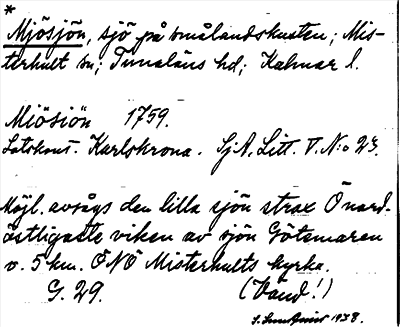 *
Mjösjön, sjö på smålandskusten; Mis-
terhult sn; Tunaläns hd; Kalmar l.
Miösiön 1759.
Lotskont. Karlskrona. SjA, Litt. V. N:o 23.
Möjl. avsågs den lilla sjön strax Ö nord-
östligaste viken av sjön Götemaren
v. 5 km. ÖNÖ Misterhults kyrka.
G. 29. (Vänd!)
1978.